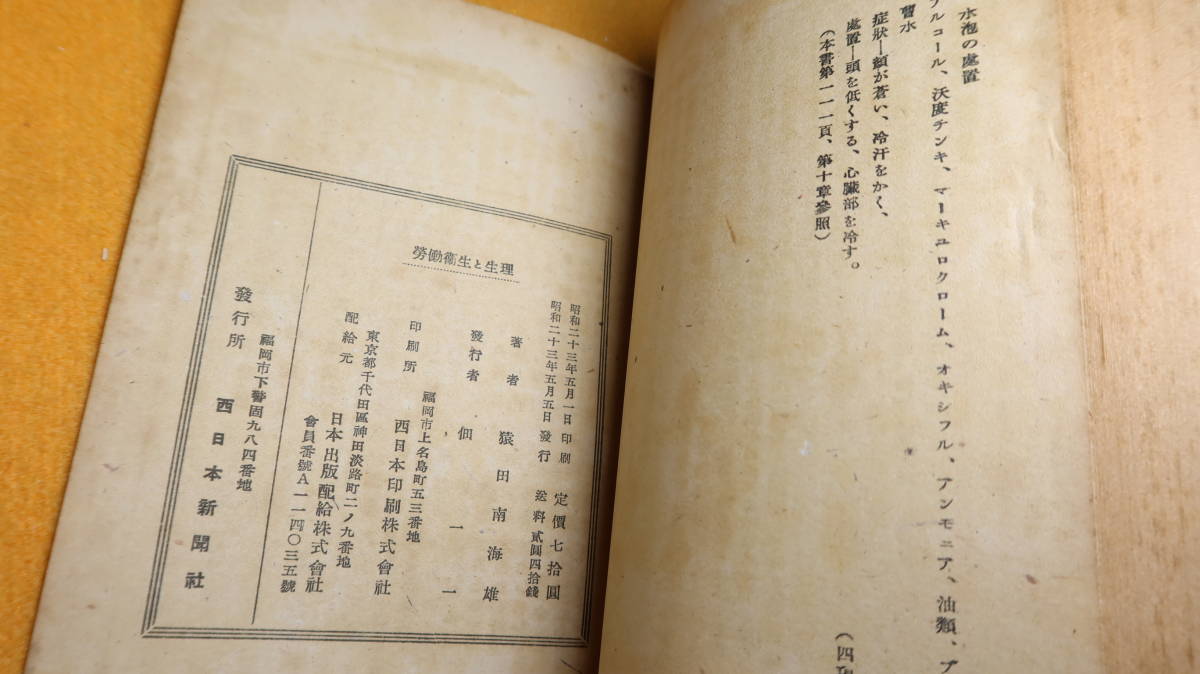 水泡の處置
フルコール、沃度チンキ、マーキユロクローム、オキシフル、アンモニア、油類、ブ
曹水
症狀―顏が蒼い、冷汗をかく、
處置―頭を低くする、心臟部を冷す。
(本書第一一一頁、第十章參照)
勞働衞生と生理
昭和二十三年五月一日印刷
昭和二十三年五月五日發行
定價七拾圓
送料貳圓四拾錢
著者 猿田南海雄
發行者 佃一一
福岡市上名島町五三番地
印刷所 西日本印刷株式會社
東京都千代田區神田淡路町二ノ九番地
配給元 日本出版配給株式會社
會員番號A一一四〇三五號
福岡市下警固九八四番地
發行所 西日本新聞社